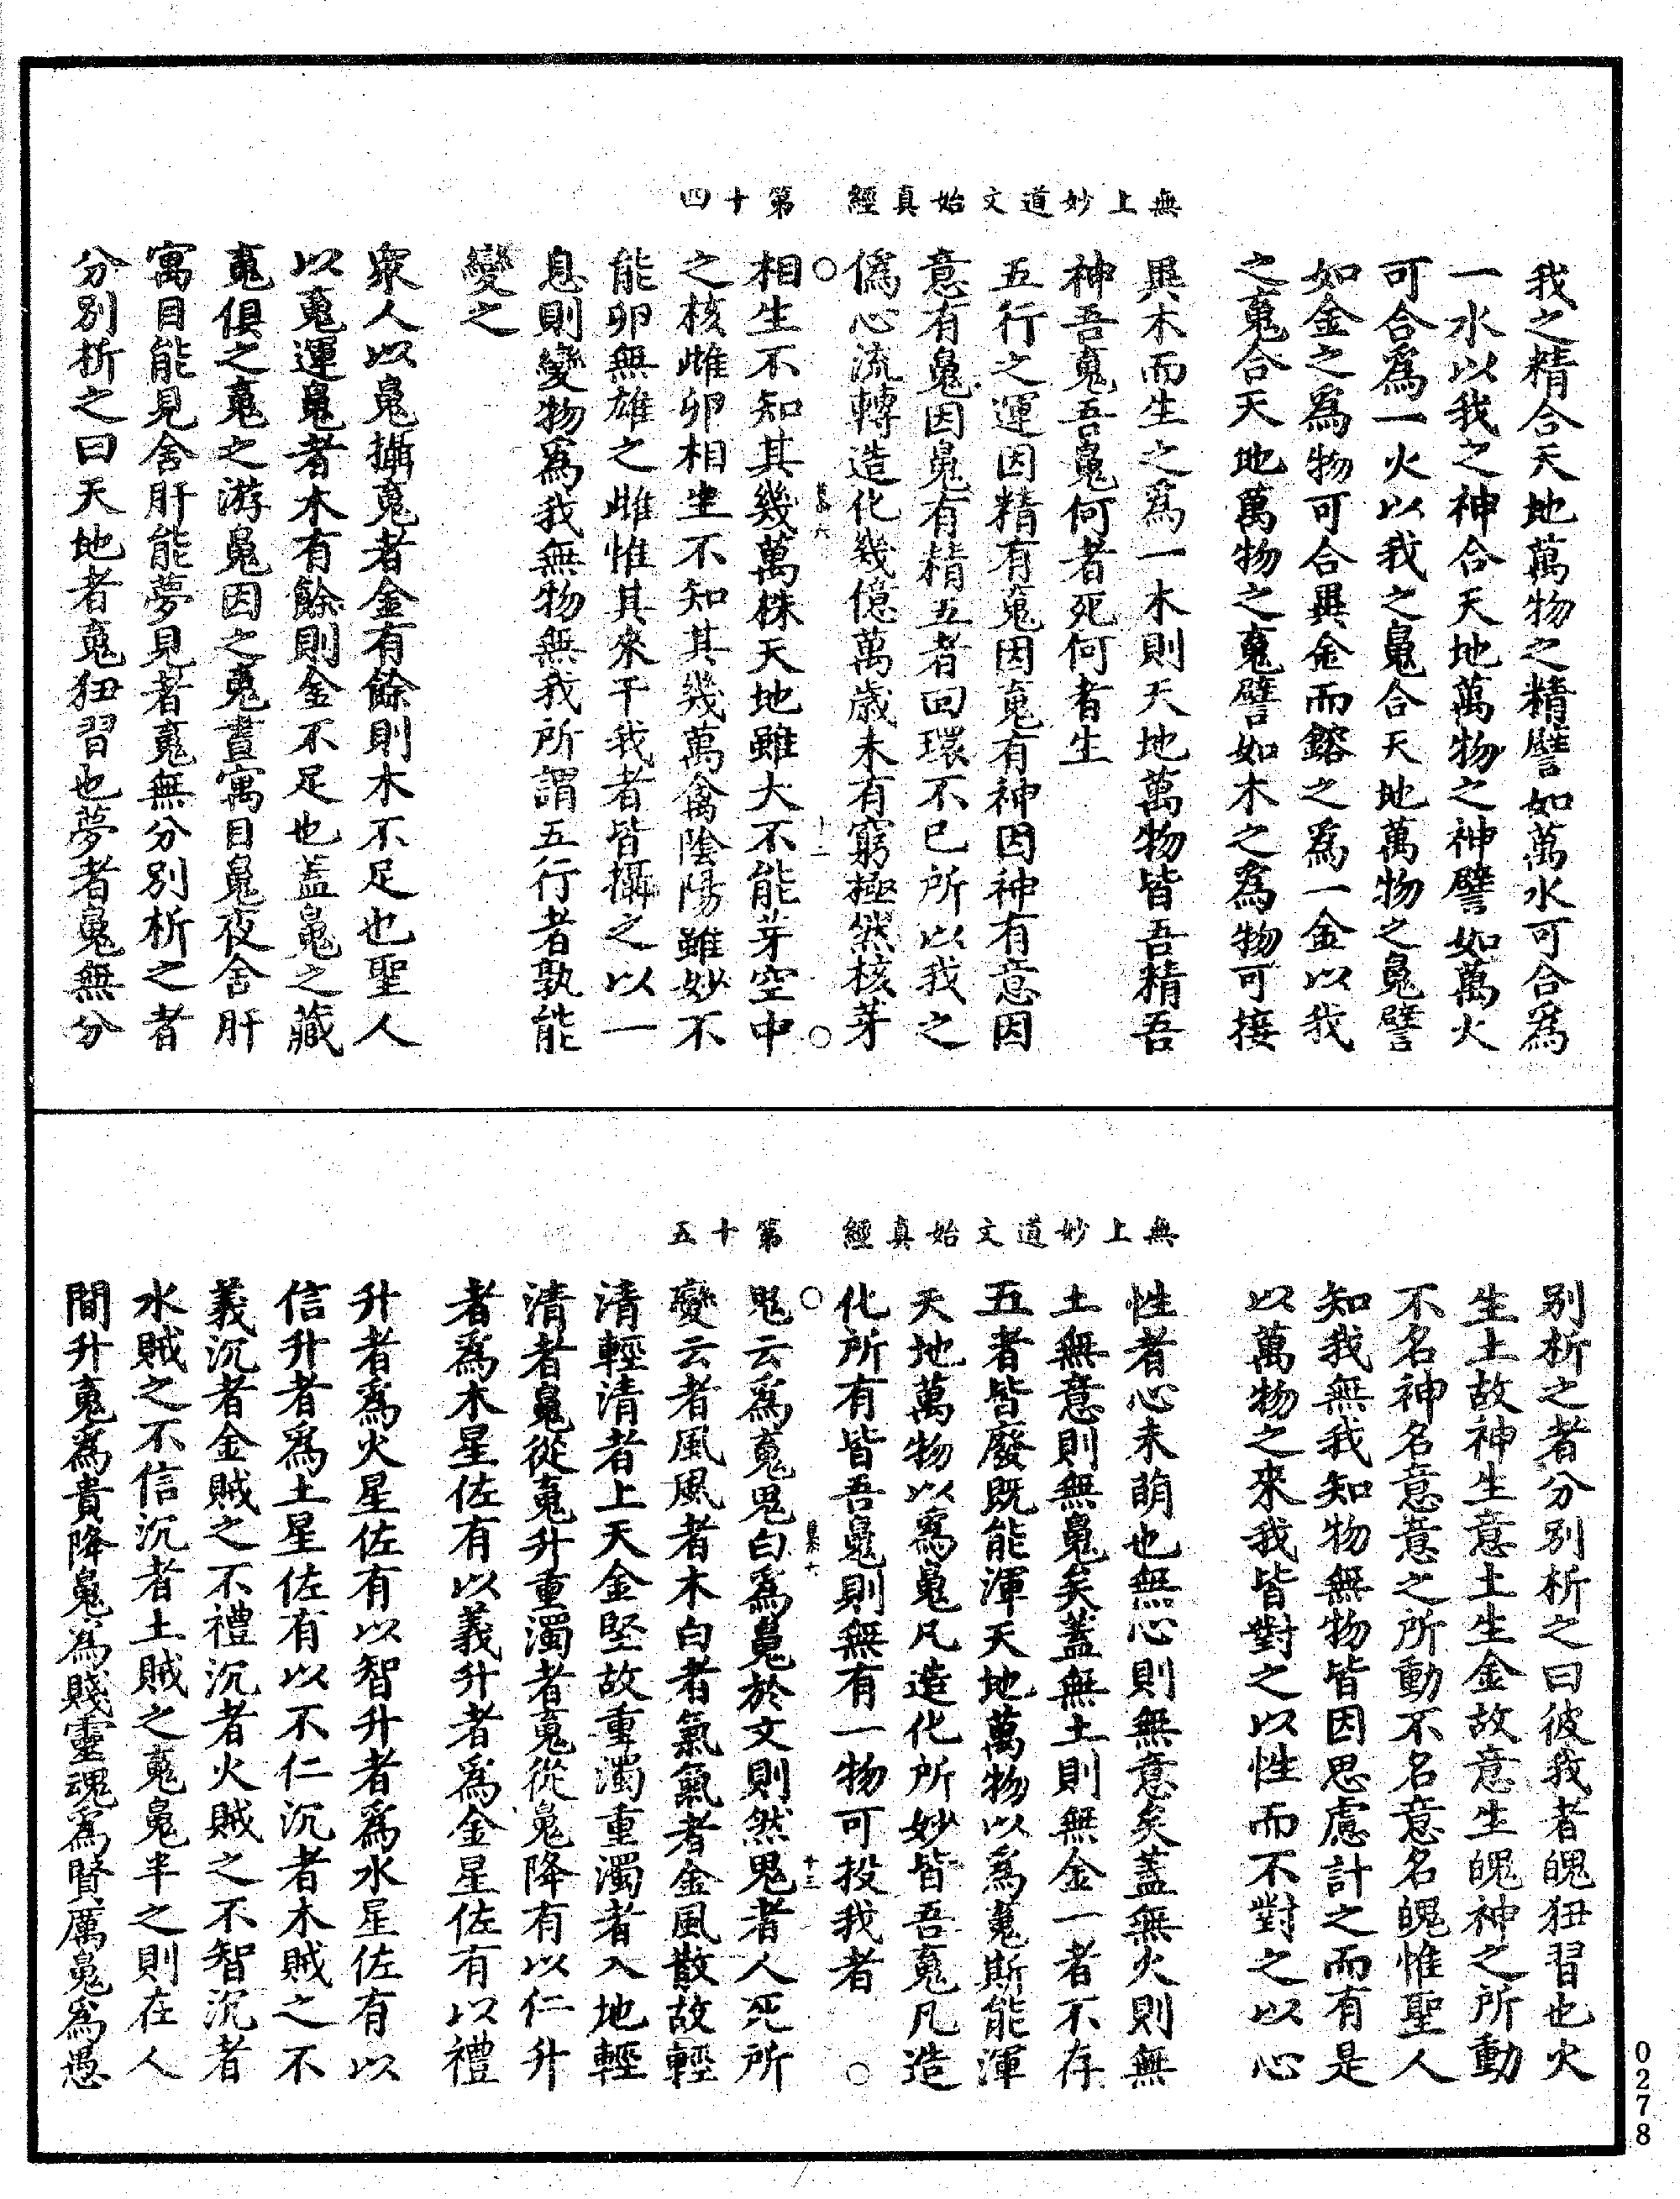 無上妙道文始真經 第十四
我之精合天地萬物之精譬如萬水可合爲
一水以我之神合天地萬物之神譬如萬火
可合爲一火以我之魄合天地萬物之魄譬
如金之爲物可合異金而鎔之爲一金以我
之䰟合天地萬物之䰟譬如木之爲物可接
異木而生之爲一木則天地萬物皆吾精吾
神吾䰟吾魄何者死何者生
五行之運因精有䰟因䰟有神因神有意因
意有魄因魄有精五者回環不已所以我之
僞心流轉造化幾億萬歲未有窮極然核芽
○ 六 十二 ○
相生不知其幾萬株天地雖大不能芽空中
之核雌卵相生不知其幾萬禽陰陽雖妙不
能卵無雄之雌惟其來干我者皆攝之以一
息則變物爲我無物無我所謂五行者孰能
變之
衆人以魄攝䰟者金有餘則木不足也聖人
以䰟運魄者木有餘則金不足也蓋魄之藏
䰟俱之䰟之游魄因之䰟晝寓目魄夜舍肝
寓目能見舍肝能夢見者䰟無分別析之者
分別析之曰天地者䰟狃習也夢者魄無分
無上妙道文始真經 第十五
別析之者分別析之曰彼我者魄狃習也火
生土故神生意土生金故意生魄神之所動
不名神名意意之所動不名意名魄惟聖人
知我無我知物無物皆因思慮計之而有是
以萬物之來我皆對之以性而不對之以心
性者心未萌也無心則無意矣蓋無火則無
土無意則無魄矣蓋無土則無金一者不存
五者皆廢既能渾天地萬物以爲䰟斯能渾
天地萬物以爲魄凡造化所妙皆吾䰟凡造
化所有皆吾魄則無有一物可投我者 ○
○ 十三
鬼云爲䰟鬼白爲魄於文則然鬼者人死所
變云者風風者木白者氣氣者金風散故輕
清輕清者上天金堅故重濁重濁者入地輕
清者魄從䰟升重濁者䰟從魄降有以仁升
者爲木星佐有以義升者爲金星佐有以禮
升者爲火星佐有以智升者爲水星佐有以
信升者爲土星佐有以不仁沉者木賊之不
義沉者金賊之不禮沉者火賊之不智沉者
水賊之不信沉者土賊之䰟魄半之則在人
間升䰟爲貴降魄爲賤靈魂爲賢厲魄爲愚
0278